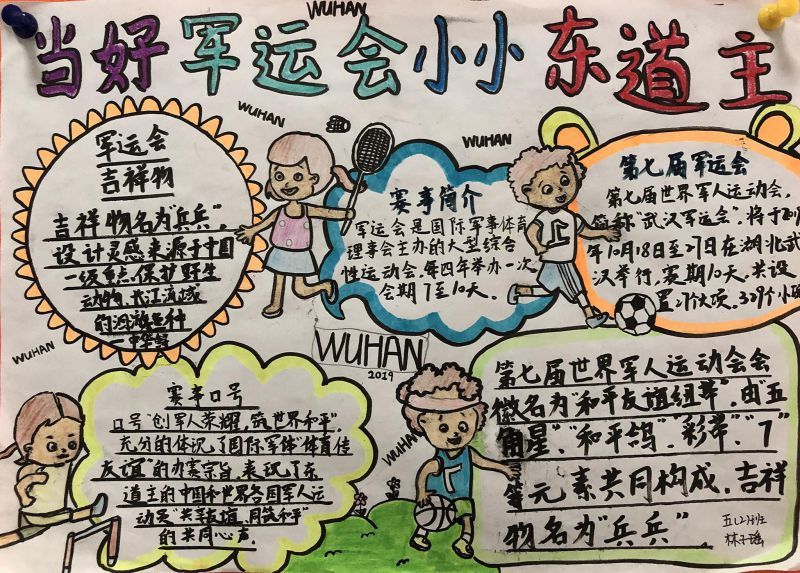 WUHAN
当好军运会小小东道主
WUHAN
WUHAN
军运会
吉祥物
吉祥物名为“兵兵”。
设计灵感来源于中国
一级重点保护野生
动物,长江流域
的洄游鱼种
一中华鲟
赛事简介
军运会是国际军事体育
理事会主办的大型综合
性运动会,每四年举办一次
会期7至10天。
第七届军运会
第七届世界军人运动会,
简称“武汉军运会”,将于
年10月18日至27日在湖北武
汉举行,赛期10天,共设
置27个大项,329个小
WUHAN
2019
WUHAN
赛事口号
口号“创军人荣耀,筑世界和平”,
充分的体现了国际军体“体育传
友谊”的办赛宗旨,表现了东
道主的中国和世界各国军人运
动员“共享友谊,同筑和平”
的共同心声。
WUHAN
第七届世界军人运动会会
徽名为“和平友谊纽带”,由“五
角星”、“和平鸽”、“彩带”、“7”
等元素共同构成,吉祥
物名为“兵兵”。
五(2)班
林子瑶